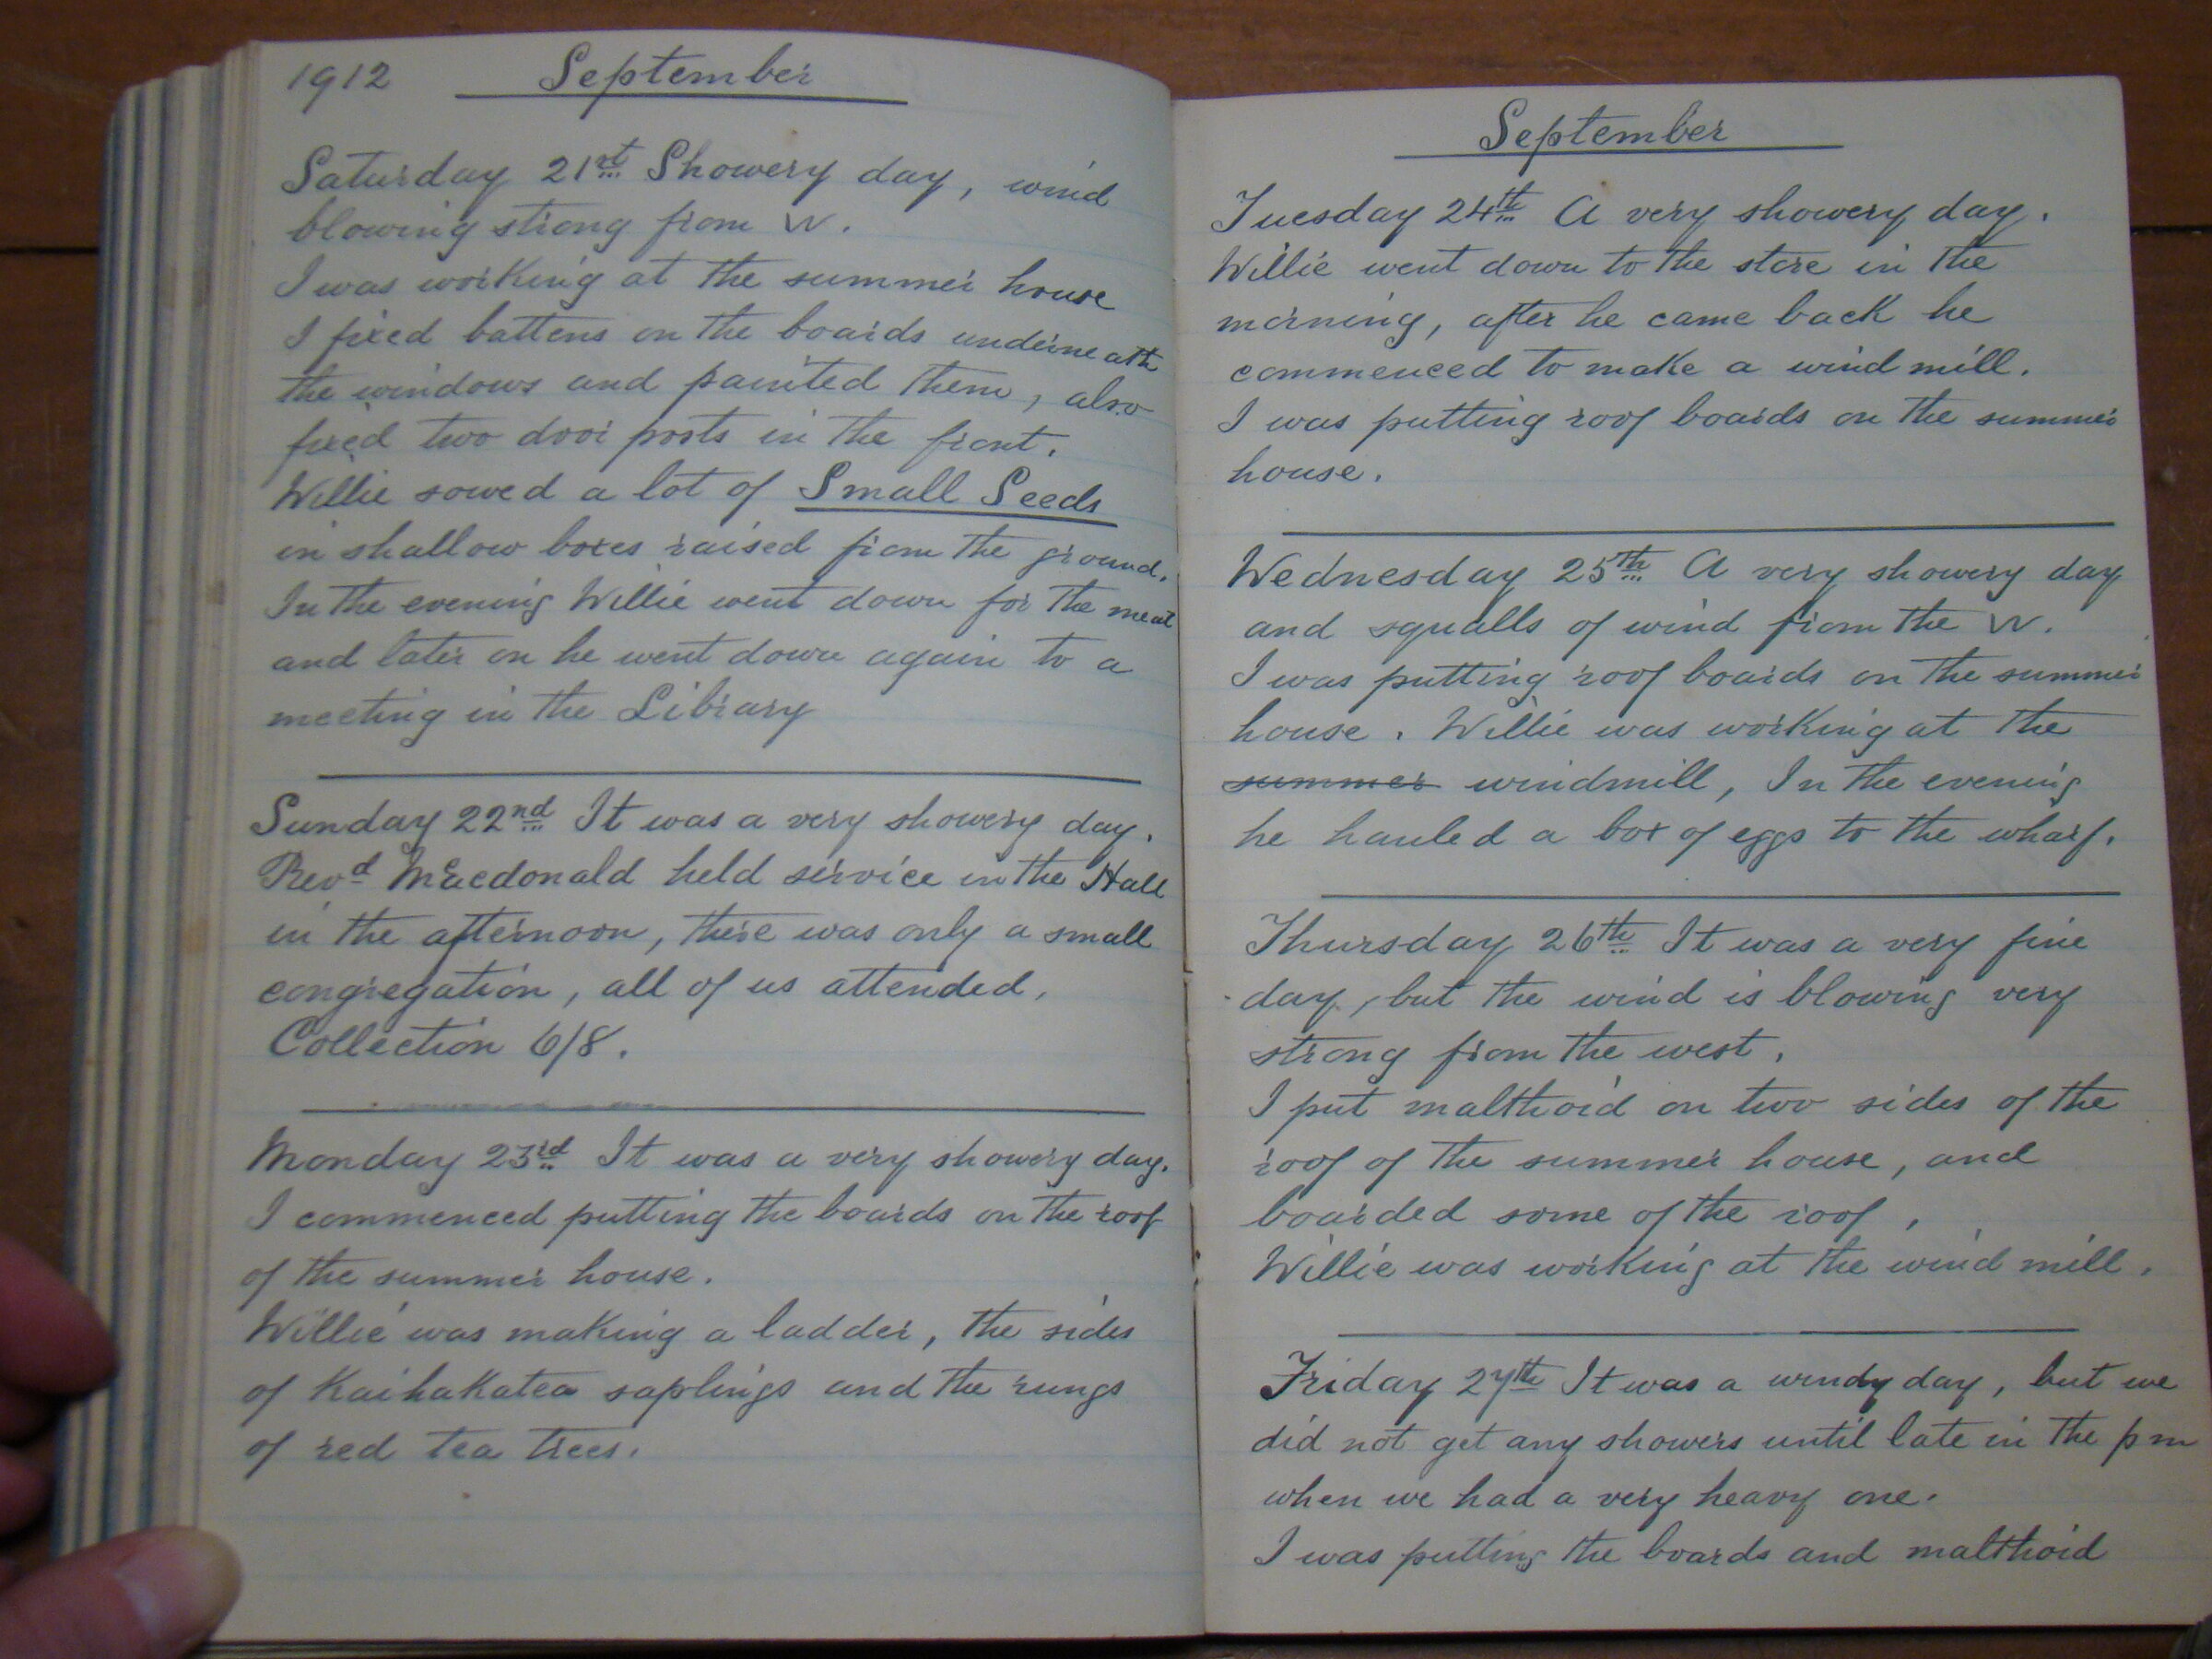 1912 September
Saturday 21st Showery day, wind
blowing strong from W.
I was working at the summer house
I fixed battens on the boards underneath
the windows and painted them, also
fixed two door posts in the front.
Willie sowed a lot of Small Seeds
in shallow boxes raised from the ground.
In the evening Willie went down for the meat
and later on he went down again to a
meeting in the Library
Sunday 22nd It was a very showery day.
Revd Macdonald held service in the Hall
in the afternoon, there was only a small
congregation, all of us attended,
Collection 6/8.
Monday 23rd It was a very showery day.
I commenced putting the boards on the roof
of the summer house.
Willie was making a ladder, the sides
of Kaihakatea saplings and the rungs
of red tea trees.
September
Tuesday 24th A very showery day.
Willie went down to the store in the
morning, after he came back he
commenced to make a wind mill.
I was putting roof boards on the summer
house.
Wednesday 25th A very showery day
and squalls of wind from the W.
I was putting roof boards on the summer
house. Willie was working at the
summer windmill, In the evening
he hauled a box of eggs to the wharf.
Thursday 26th It was a very fine
day, but the wind is blowing very
strong from the west,
I put malthoid on two sides of the
roof of the summer house, and
boarded some of the roof,
Willie was working at the wind mill.
Friday 27th It was a windy day, but we
did not get any showers until late in the pm
when we had a very heavy one.
I was putting the boards and malthoid